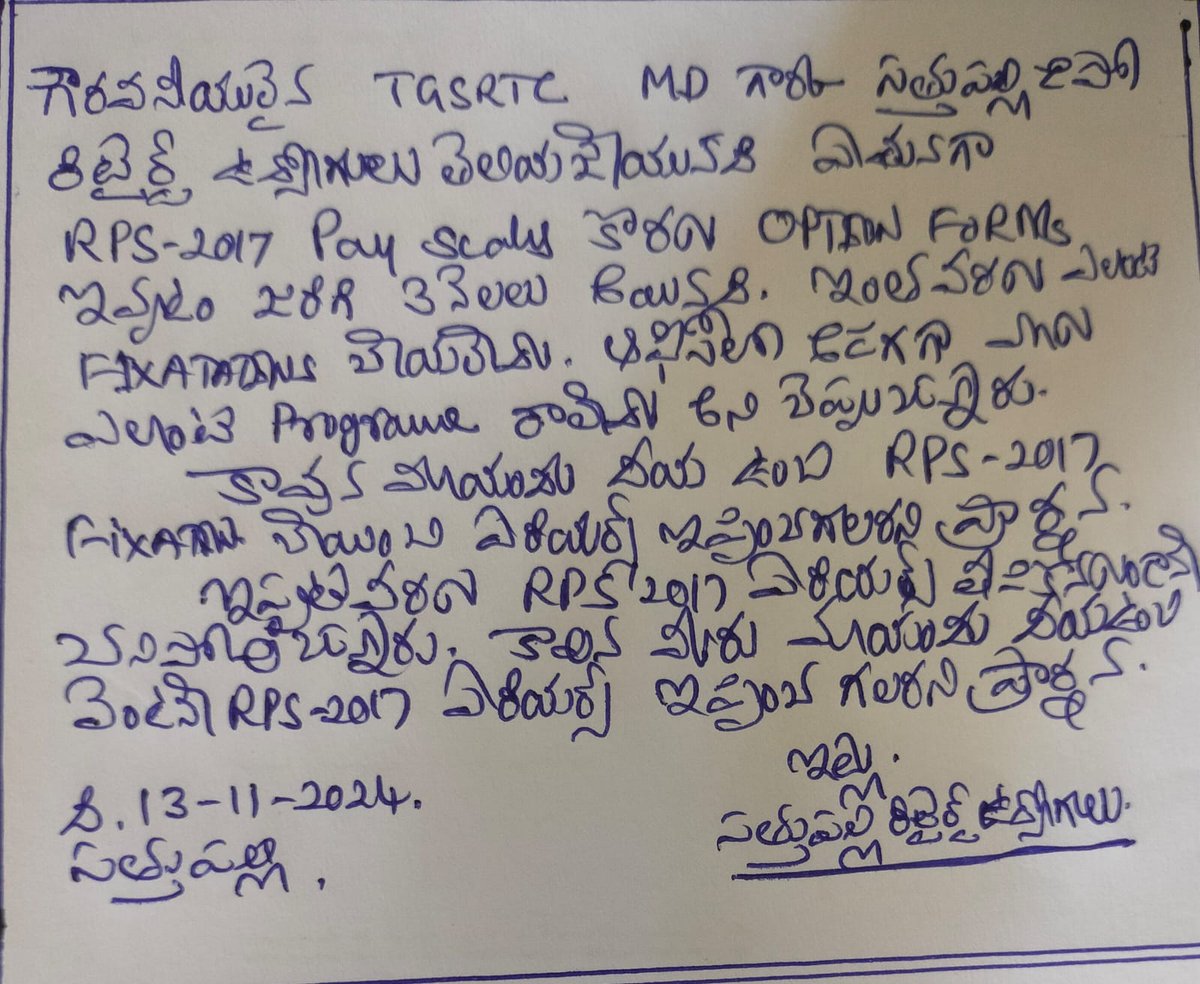 గౌరవనీయులైన TGSRTC MD గారికి సత్తుపల్లి డిపో
రిటైర్డ్ ఉద్యోగులు తెలియజేయునది ఏమనగా
RPS-2017 Pay scales కొరకు OPTION FORMs
ఇవ్వడం జరిగి 3 నెలలు అయినది. ఇంతవరకు ఎలాంటి
FIXATATIONS చేయలేదు. ఆఫీసులో అడగగా మాకు
ఎలాంటి Programe రాలేదు అని చెప్పుచున్నారు.
కావున మాయందు దయ ఉంచి RPS-2017
FIXATION చేయించి ఏరియర్స్ ఇప్పించగలరని ప్రార్థన.
ఇప్పటివరకు RPS 2017 ఏరియర్స్
చనిపోతున్నారు. కావున మీరు మాయందు దయఉంచి
వెంటనే RPS-2017 ఏరియర్స్ ఇప్పించ గలరని ప్రార్థన.
ఇట్లు.
ది. 13-11-2024.
సత్తుపల్లి రిటైర్డ్ ఉద్యోగులు.
సత్తుపల్లి.